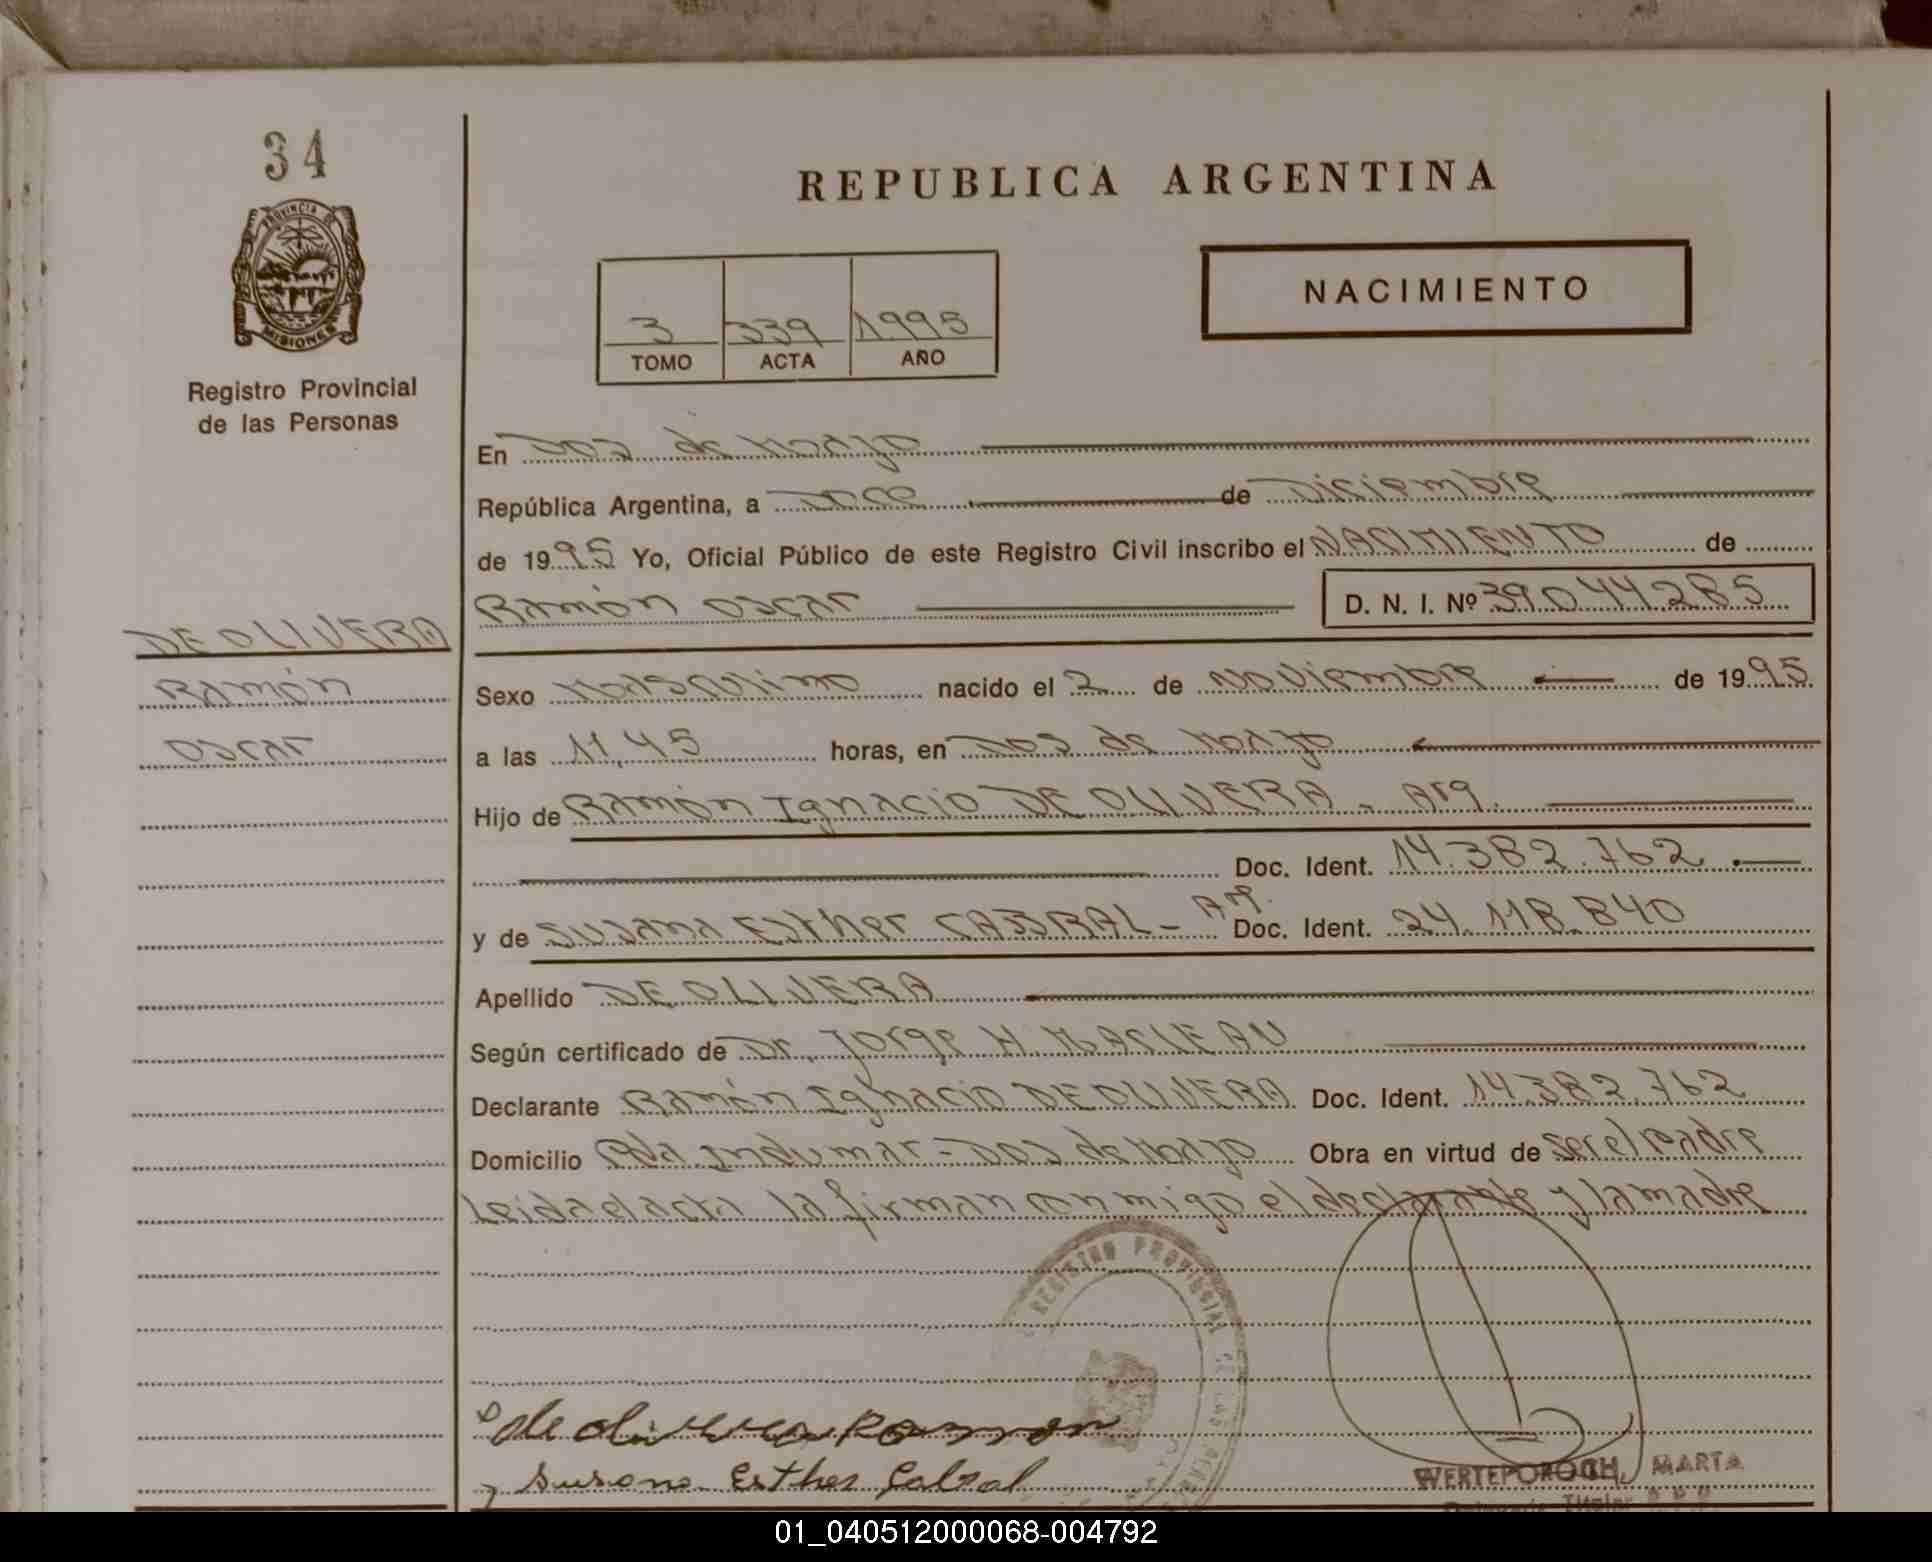 34
PROVINCIA DE
MISIONES
Registro Provincial
de las Personas
DE OLIVERA
Ramón
Oscar
REPUBLICA ARGENTINA
NACIMIENTO
3 339 1.995
TOMO ACTA AÑO
En Dos de Mayo
República Argentina, a Doce de Diciembre
de 1995 Yo, Oficial Público de este Registro Civil inscribo el NACIMIENTO de
Ramón Oscar D. N. I. Nº 39.044.285
Sexo Masculino nacido el 2 de Noviembre de 1995
a las 11,45 horas, en Dos de Mayo
Hijo de Ramón Ignacio DE OLIVERA - Arg.
Doc. Ident. 14.382.762
y de Susana Esther CABRAL - Arg. Doc. Ident. 24.118.840
Apellido DE OLIVERA
Según certificado de Dr. Jorge H MACLEAU
Declarante Ramón Ignacio DE OLIVERA Doc. Ident. 14.382.762
Domicilio Pda. Indumar - Dos de Mayo Obra en virtud de ser el padre
Leida el acta la firman conmigo el declarante y la madre
REGISTRO PROVINCIAL DE LAS
de olivera Ramon
Susana Esther Cabral
WERTEPOROCH, MARTA
Titular
01_040512000068-004792